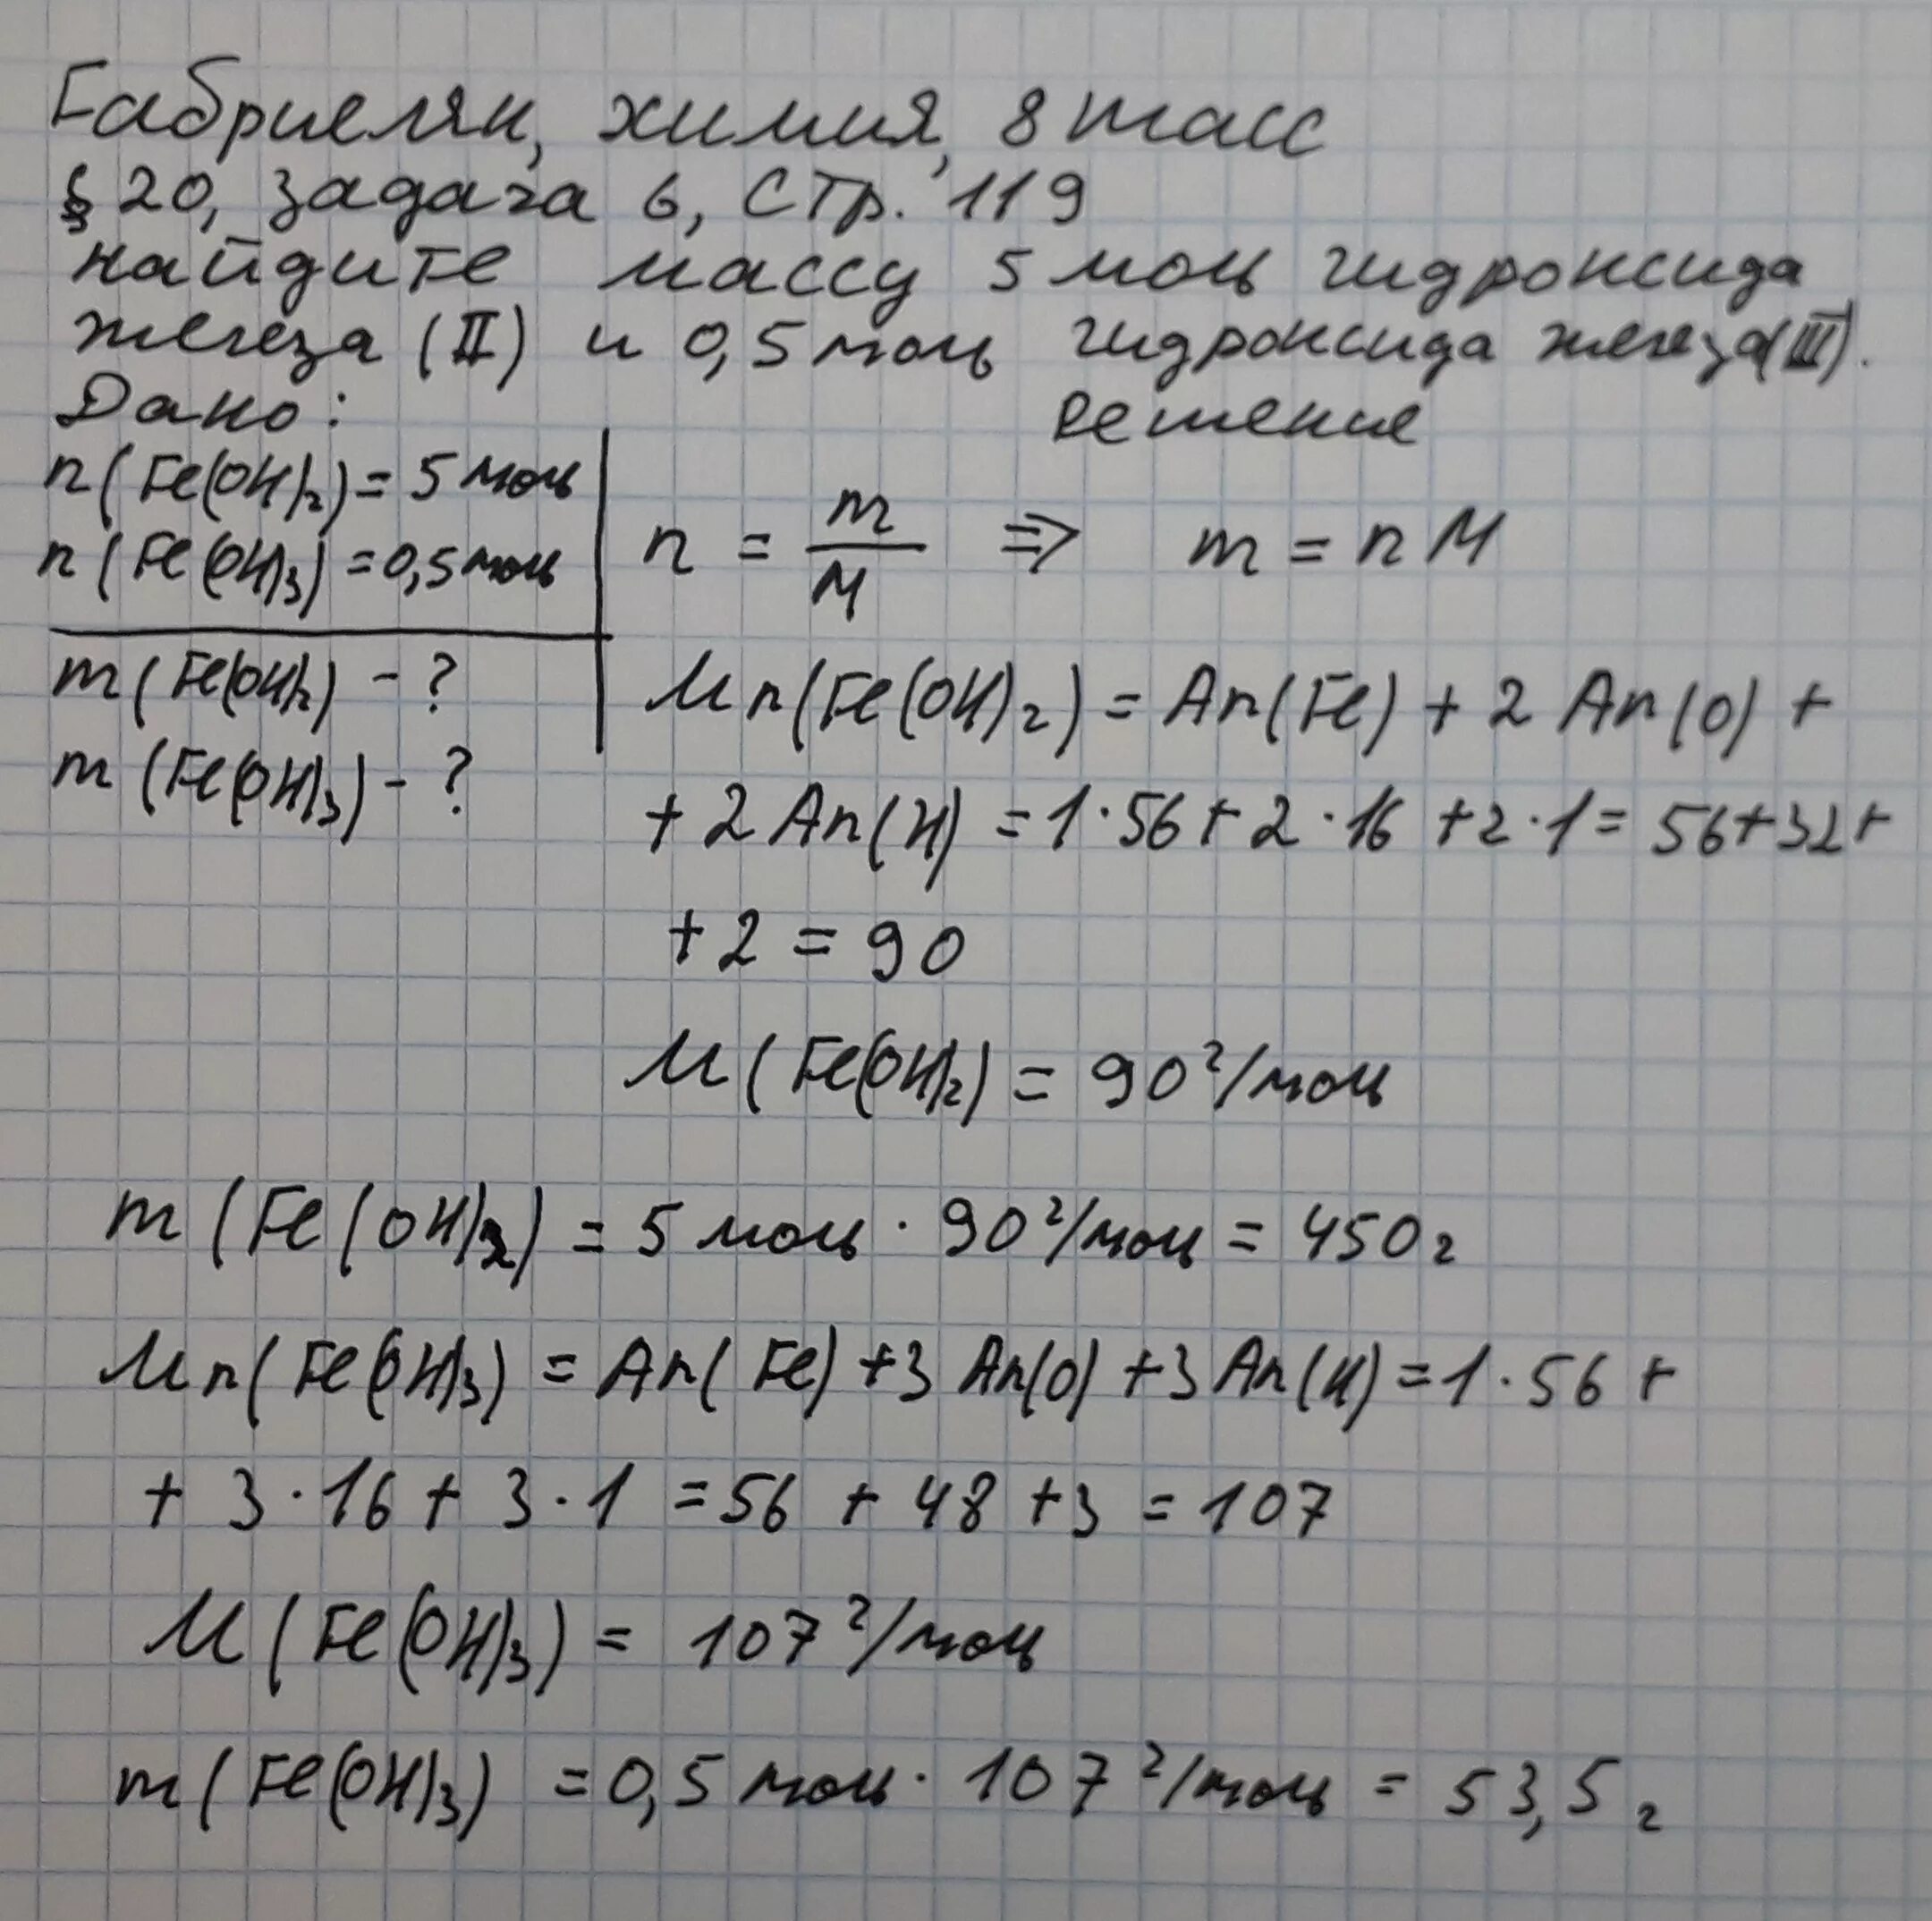 Габриелян, химия, 8 класс
§ 20, задача 6, стр. 119
найдите массу 5 моль гидроксида
железа (II) и 0,5 моль гидроксида железа (III).
Дано:
n (Fe(OH)2) = 5 моль
n (Fe(OH)3) = 0,5 моль
m (Fe(OH)2) - ?
m (Fe(OH)3) - ?
Решение
n = m/M ⇒ m = n M
Mr(Fe(OH)2) = Ar(Fe) + 2 Ar(O) +
+ 2 Ar(H) = 1·56 + 2·16 + 2·1 = 56+32+
+ 2 = 90
M (Fe(OH)2) = 90 г/моль
m (Fe(OH)2) = 5 моль · 90 г/моль = 450 г
Mr(Fe(OH)3) = Ar(Fe) + 3 Ar(O) + 3 Ar(H) = 1·56 +
+ 3·16 + 3·1 = 56 + 48 + 3 = 107
M (Fe(OH)3) = 107 г/моль
m (Fe(OH)3) = 0,5 моль · 107 г/моль = 53,5 г